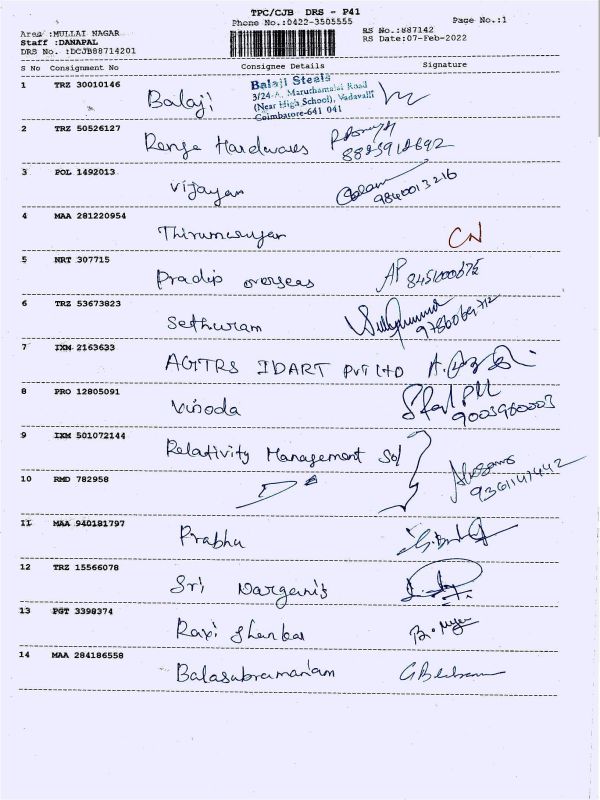 TPC/CJB DRS - P41
Phone No.:0422-3505555
Page No.:1
Area :MULLAI NAGAR
Staff :DANAPAL
DRS No. :DCJB88714201
RS No.:887142
RS Date:07-Feb-2022
S No Consignment No Consignee Details Signature
1 TRZ 30010146 Balaji
Balaji Steels
3/24-A, Maruthamalai Road
(Near High School), Vadavalli
Coimbatore-641 041
2 TRZ 50526127 Renga Hardwares
3 POL 1492013 Vijayan
9840013216
4 MAA 281220954 CN
5 NRT 307715 Pradip overseas AP
6 TRZ 53673823 Sethuram
7 IXM 2163633 IDART PVT LTD
8 PRO 12805091 Vinoda
9003960003
9 IXM 501072144 Relativity Management Sol
10 RMD 782958
9361141442
11 MAA 940181797 Prabhu
12 TRZ 15566078 Sri
13 PGT 3398374 Ravi Shankar
14 MAA 284186558 Balasubramaniam